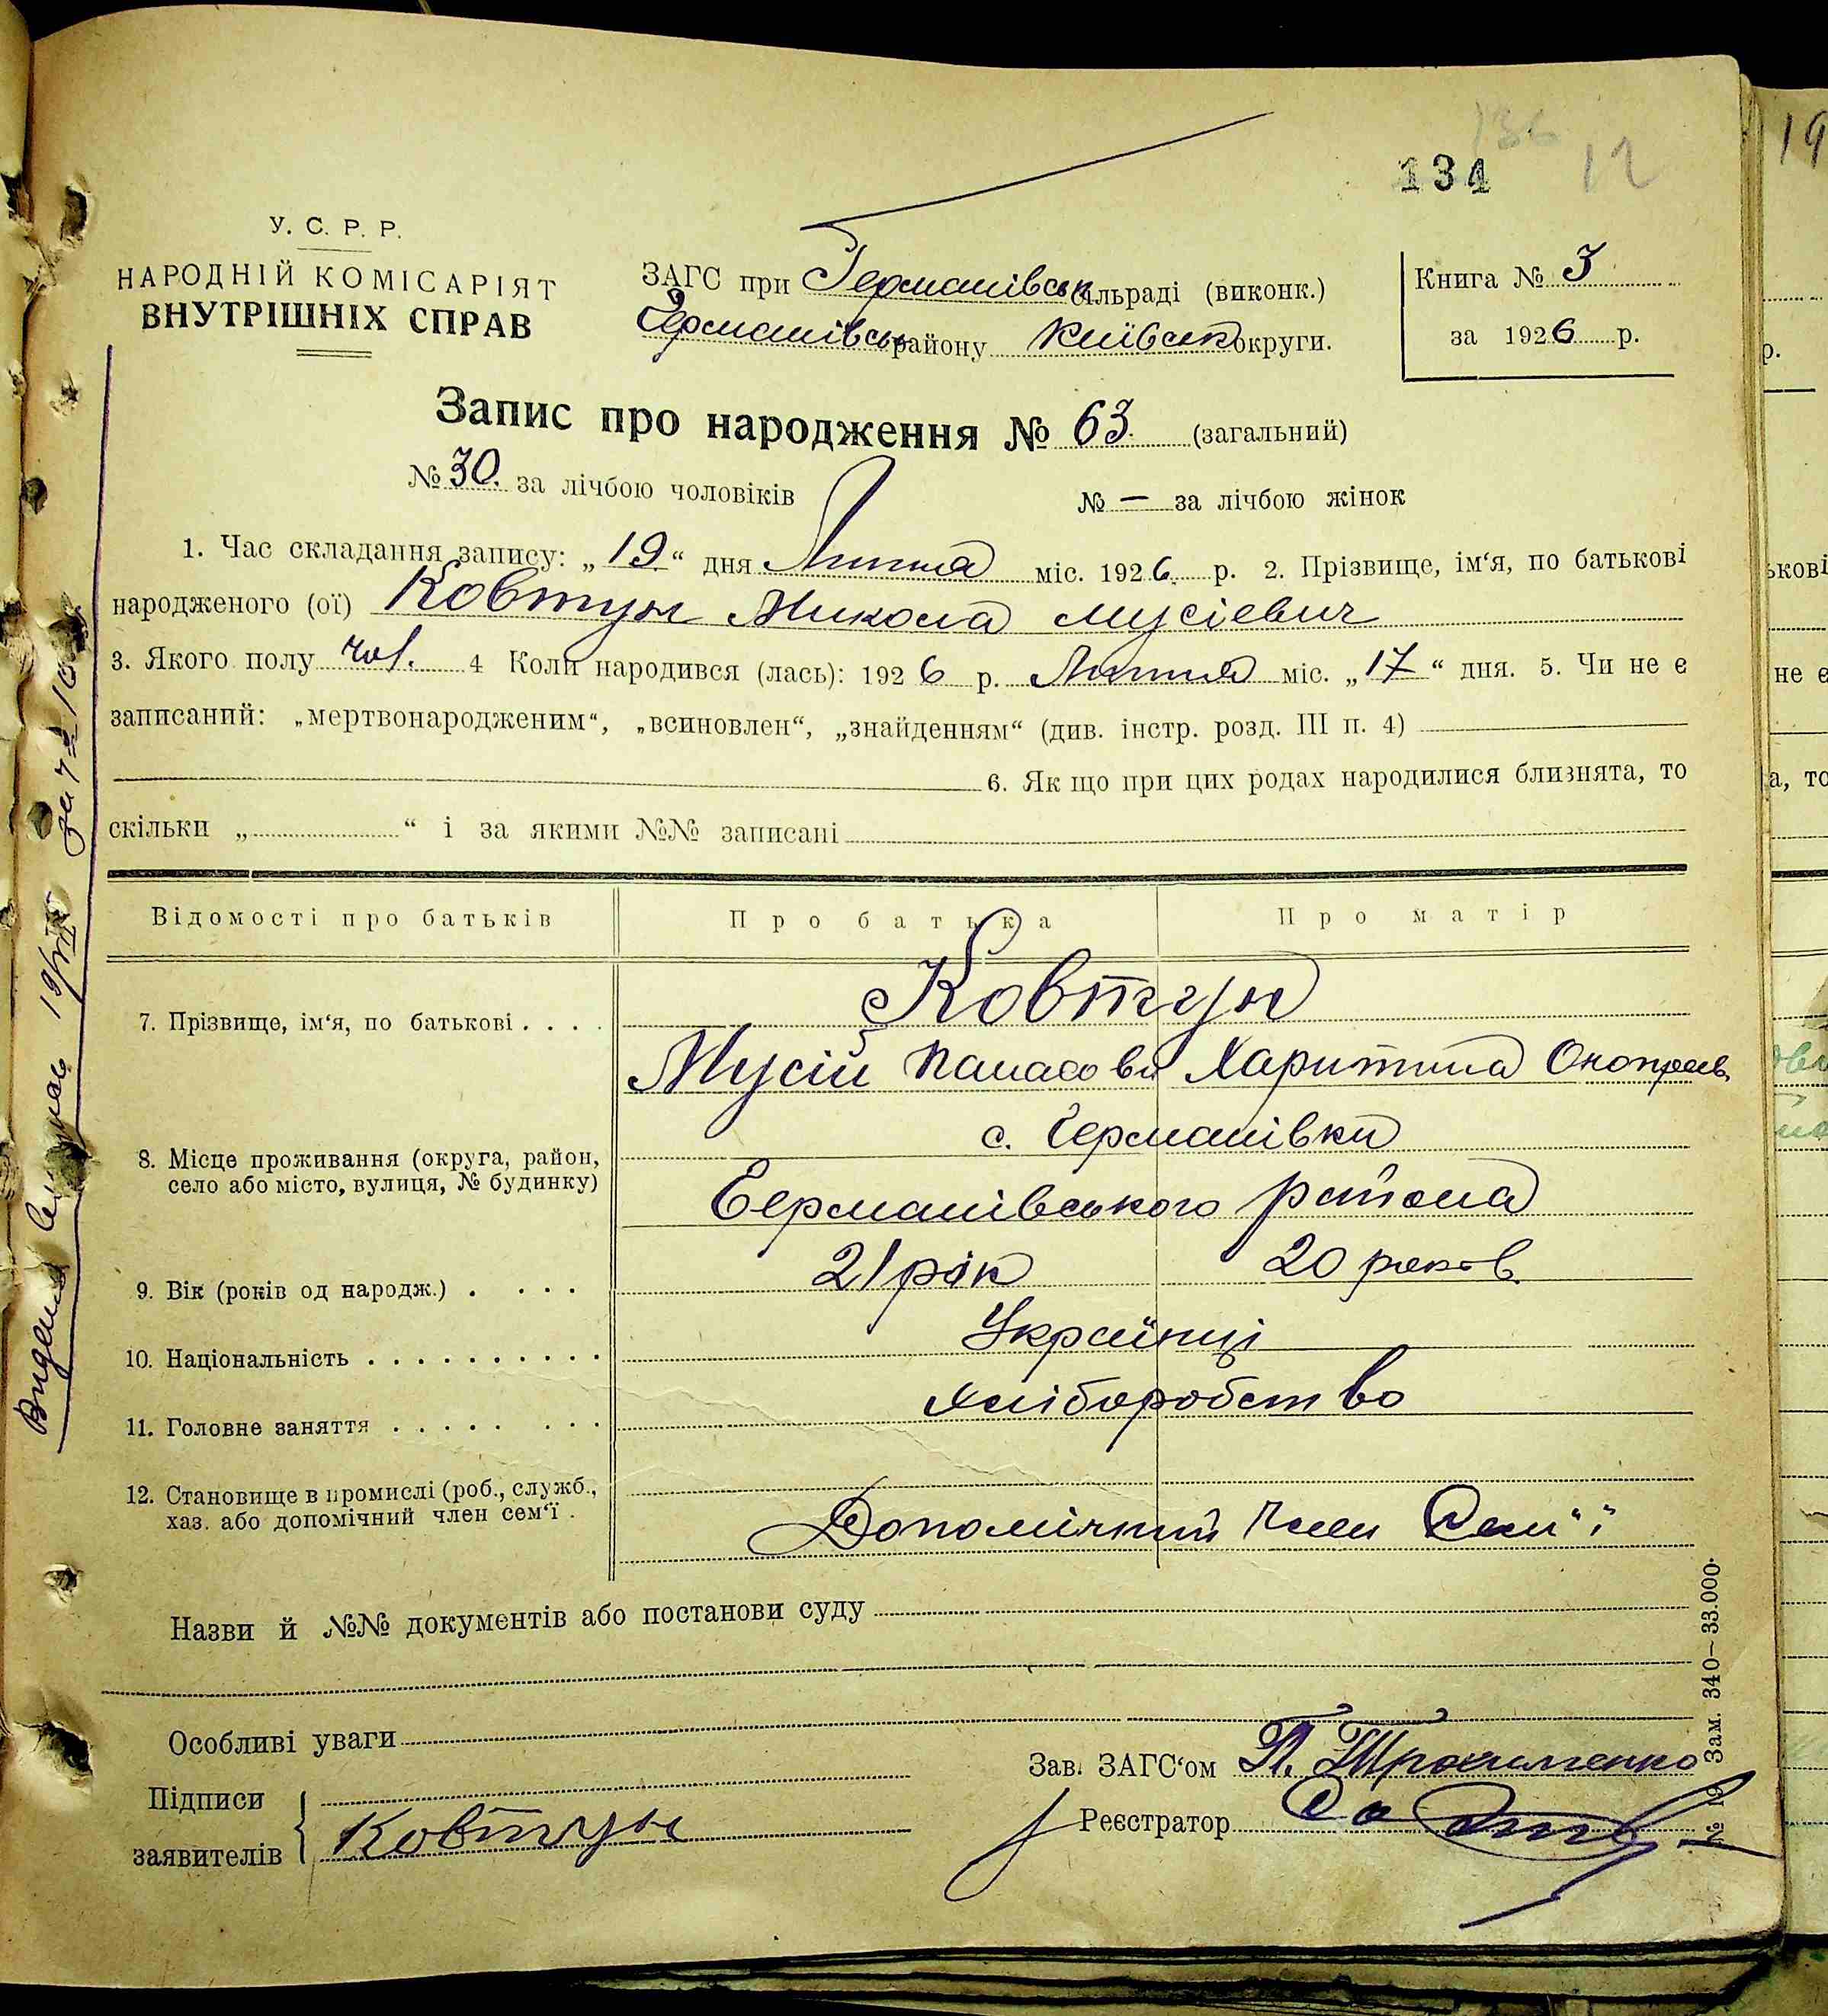 136
134 12
У. С. Р. Р.
НАРОДНІЙ КОМІСАРІЯТ
ВНУТРІШНІХ СПРАВ
ЗАГС при Германівськ сільраді (виконк.)
Германівськ району Київськ округи.
Книга № 3
за 1926 р.
Запис про народження № 63. (загальний)
№ 30. за лічбою чоловіків № — за лічбою жінок
1. Час складання запису: „19“ дня Липня міс. 1926 р. 2. Прізвище, ім‘я, по батькові
народженого (ої) Ковтун Микола Мусієвич
3. Якого полу чол. 4 Коли народився (лась): 1926 р. Липня міс. „17“ дня. 5. Чи не є
записаний: „мертвонародженим“, „всиновлен“, „знайденням“ (див. інстр. розд. III п. 4)
6. Як що при цих родах народилися близнята, то
скільки „ “ і за якими №№ записані
Відомості про батьків Про батька Про матір
7. Прізвище, ім‘я, по батькові . . . . Ковтун
Мусій Панасов Харитина Оноприєв.
8. Місце проживання (округа, район, с. Германівки
село або місто, вулиця, № будинку) Германівського района
9. Вік (років од народж.) . . . . 21 рік 20 рок.
10. Національність . . . . . . . . . . . Українці
11. Головне заняття . . . . . . . . Хліборобство
12. Становище в промислі (роб., служб.,
хаз. або допомічний член сем‘ї . Допомічний Член Сем"ї
Назви й №№ документів або постанови суду
Особливі уваги
Підписи
заявителів Ковтун
Зав. ЗАГС‘ом П. Трохименко
Реєстратор
№ 19 Зам. 340–33.000.
19/VII за №